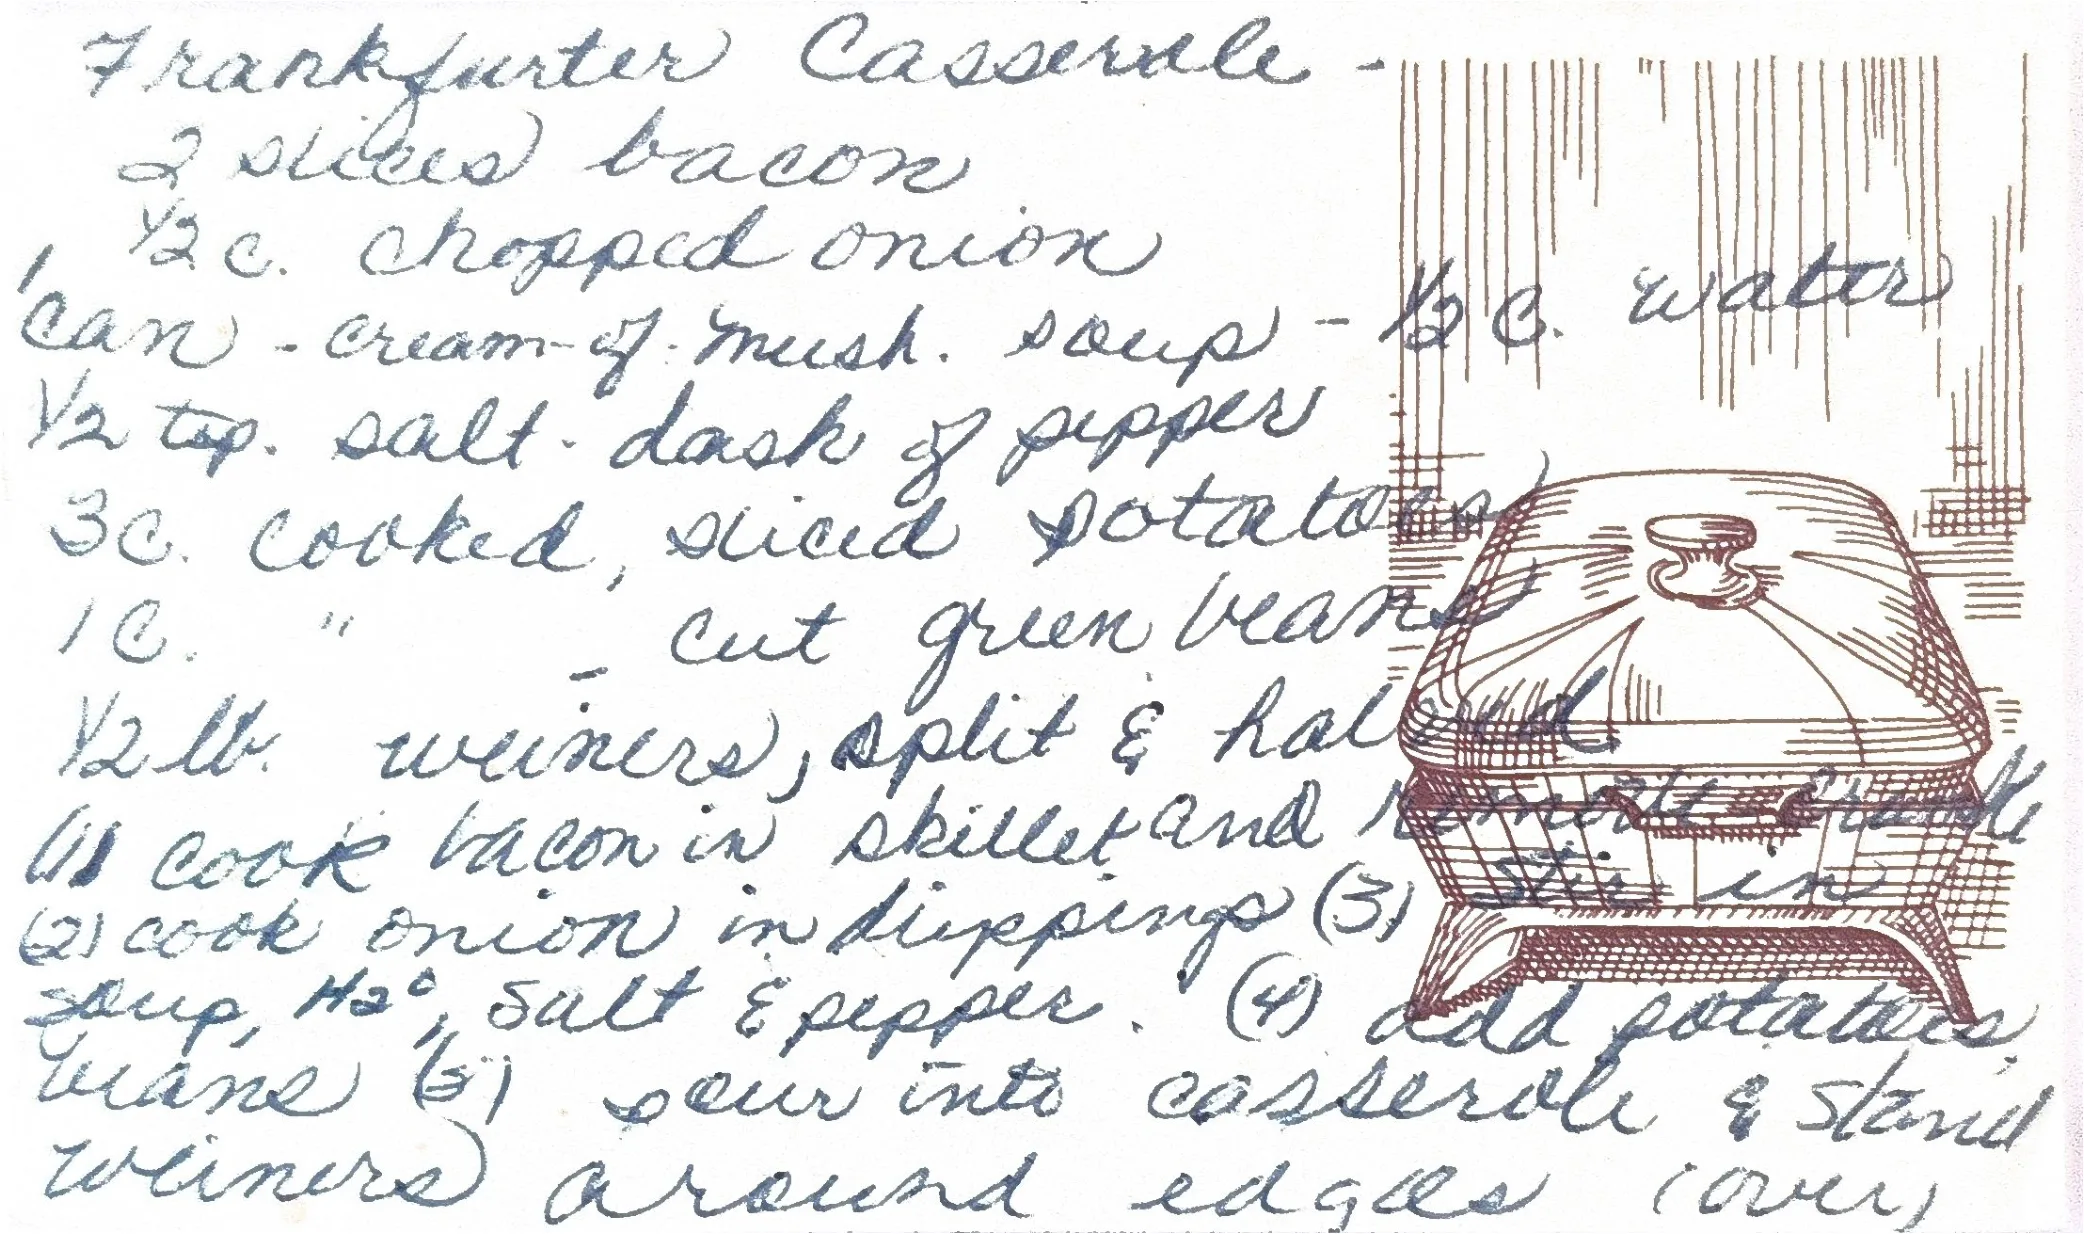 Frankfurter Casserole -
2 slices bacon
1/2 c. chopped onion
1 can - cream-of-mush. soup - 1/2 c. water
1/2 tsp. salt - dash of pepper
3 c. cooked, sliced potatoes
1 c. " - cut green beans
1/2 lb. weiners, split & halved
(1) cook bacon in skillet and remove - crumble
(2) cook onion in drippings (3) Stir in
soup, H2O, salt & pepper. (4) add potatoes,
beans (5) pour into casserole & stand
weiners around edges (over)